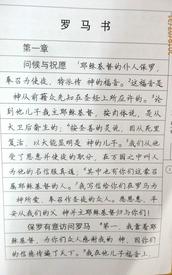 罗马书
第一章
问候与祝愿 ¹耶稣基督的仆人保罗，
奉召为使徒，特派传 神的福音。²这福音是
神从前藉众先知在圣经上所应许的。³论
到他儿子我主耶稣基督，按肉体说，是从
大卫后裔生的；⁴按圣善的灵说，因从死里
复活，以大能显明是 神的儿子。⁵我们从他
受了恩惠并使徒的职分，在万国之中叫人
为他的名信服真道；⁶其中也有你们这蒙召
属耶稣基督的人。⁷我写信给你们在罗马为
神所爱，奉召作圣徒的众人。愿恩惠、平
安从我们的父 神并主耶稣基督归与你们！
保罗有意访问罗马 ⁸第一，我靠着耶
稣基督，为你们众人感谢我的 神，因你们
的信德传遍了天下。⁹我在他儿子福音上，